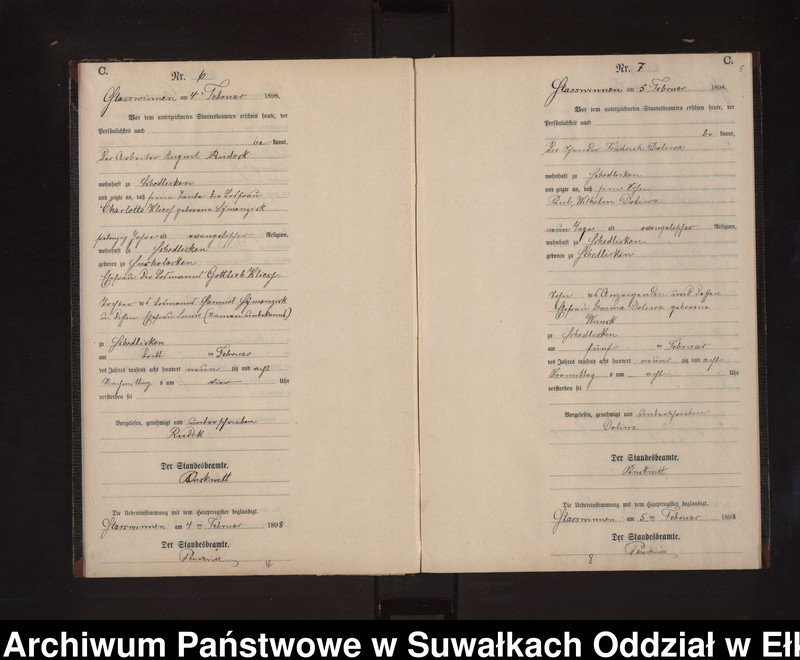 C.
Nr. 6
Glasswinnen am 4. Februar 1898.
Vor dem unterzeichneten Standesbeamten erschien heute, der
Persönlichkeit nach
be kannt,
Der Arbeiter August Rudek
wohnhaft zu Schedlisken
und zeigte an, daß seine Tante die Losfrau
Charlotte Kliesch geborene Schimanzick
siebenzig Jahre alt evangelischer Religion,
wohnhaft zu Schedlisken
geboren zu
Ehefrau des Losmanns Gottlieb Kliesch
Tochter des Losmanns Samuel Schimanzick
u. dessen Ehefrau Louise (Namen unbekannt)
zu Schedlisken
am dritten Februar
des Jahres tausend acht hundert neun zig und acht
Nachmittag s um vier Uhr
verstorben sei
Vorgelesen, genehmigt und unterschrieben
Rudek
Der Standesbeamte.
Die Uebereinstimmung mit dem Hauptregister beglaubigt.
Glasswinnen am 4 ten Februar 1898
Der Standesbeamte.
C.
Nr. 7
Glasswinnen am 5. Februar 1898.
Vor dem unterzeichneten Standesbeamten erschien heute, der
Persönlichkeit nach
be kannt,
Der Friedrich Doliwa
wohnhaft zu Schedlisken
und zeigte an, daß sein Sohn
Paul, Wilhelm Doliwa
neun Tage alt evangelischer Religion,
wohnhaft zu Schedlisken
geboren zu Schedlisken
Sohn des Anzeigenden und dessen
Ehefrau Emma Doliwa geborene
zu Schedlisken
am fünften Februar
des Jahres tausend acht hundert neun zig und acht
Vormittag s um acht Uhr
verstorben sei
Vorgelesen, genehmigt und unterschrieben
Doliwa
Der Standesbeamte.
Die Uebereinstimmung mit dem Hauptregister beglaubigt.
Glasswinnen am 5 ten Februar 1898
Der Standesbeamte.
Archiwum Państwowe w Suwałkach Oddział w Ełk